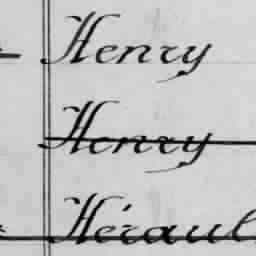 Henry
Henry
Héraul